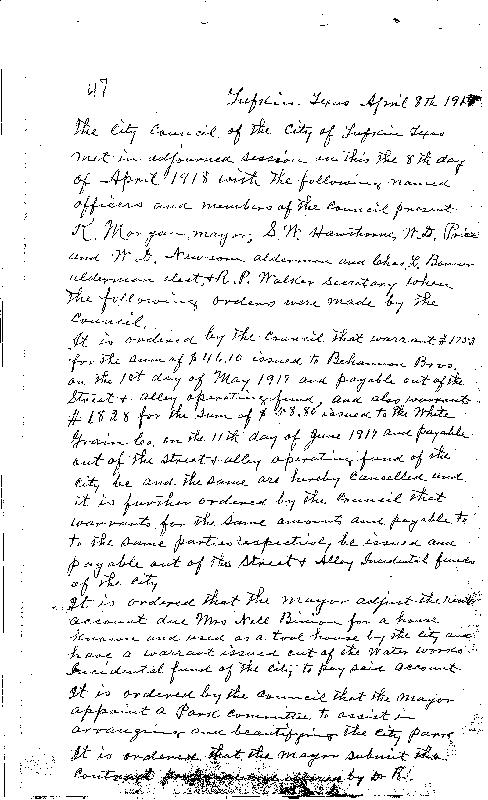 47
Lufkin Texas April 8th 191
The City Council of the City of Lufkin Texas
met in adjourned session on this the 8th day
of April 1918 with the following named
officers and members of the council present
K. Morgan mayor, S. W. Hawthorne, W. D. Price
and W. D. Newsom aldermen and Chas. L.
alderman elect, & R. P. Walker Secretary when
the following orders were made by the
council.
It is ordered by the Council that warrant # 1753
for the sum of $ 46.10 issued to Behannon Bros.
on the 1st day of May 1917 and payable out of the
Street & alley operating fund, and also warrant
# 1828 for the sum of $ 58.80 issued to the White
Grain Co. on the 11th day of June 1917 and payable
out of the Street & alley operating fund of the
City be and the same are hereby Cancelled and
it is further ordered by the Council that
warrants for the same amounts and payable to
to the same parties respectively be issued and
payable out of the Street & Alley Incidental funds
of the City
It is ordered that the mayor adjust the rent
account due Mrs Nell for a house
known and used as a tool house by the city and
have a warrant issued out of the Water works
Incidental fund of the City to pay said account.
It is ordered by the council that the Mayor
appoint a Park Committee, to assist in
arranging and beautifying the City Park
It is ordered that the Mayor submit the
Contract by